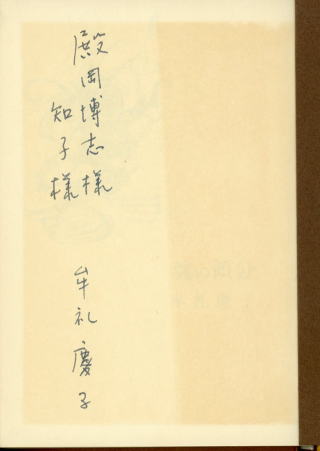 殿岡博志様
知子様
牟礼慶子